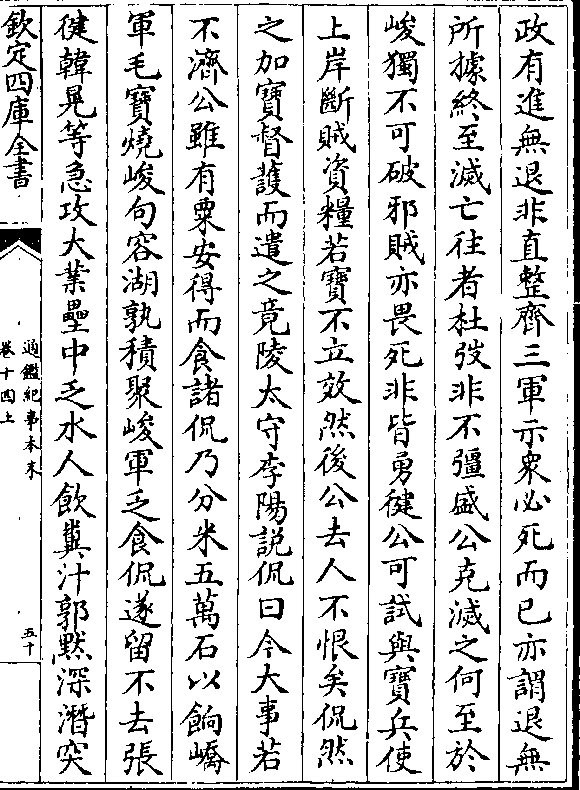 政有進無退非直整齊三軍示衆必死而已亦謂退無
所據終至滅亡往者杜弢非不彊盛公克滅之何至於
峻獨不可破邪賊亦畏死非皆勇健公可試與寳兵使
上岸斷賊資糧若寳不立效然後公去人不恨矣侃然
之加寳督護而遣之竟陵太守李陽説侃曰今大事若
不濟公雖有粟安得而食諸侃乃分米五萬石以餉嶠
軍毛寳燒峻句容湖孰積聚峻軍乏食侃遂留不去張
健韓晃等急攻大業壘中乏水人飲糞汁郭黙深潛突
欽定四庫全書
通鑑紀事本末
卷十四上
五十